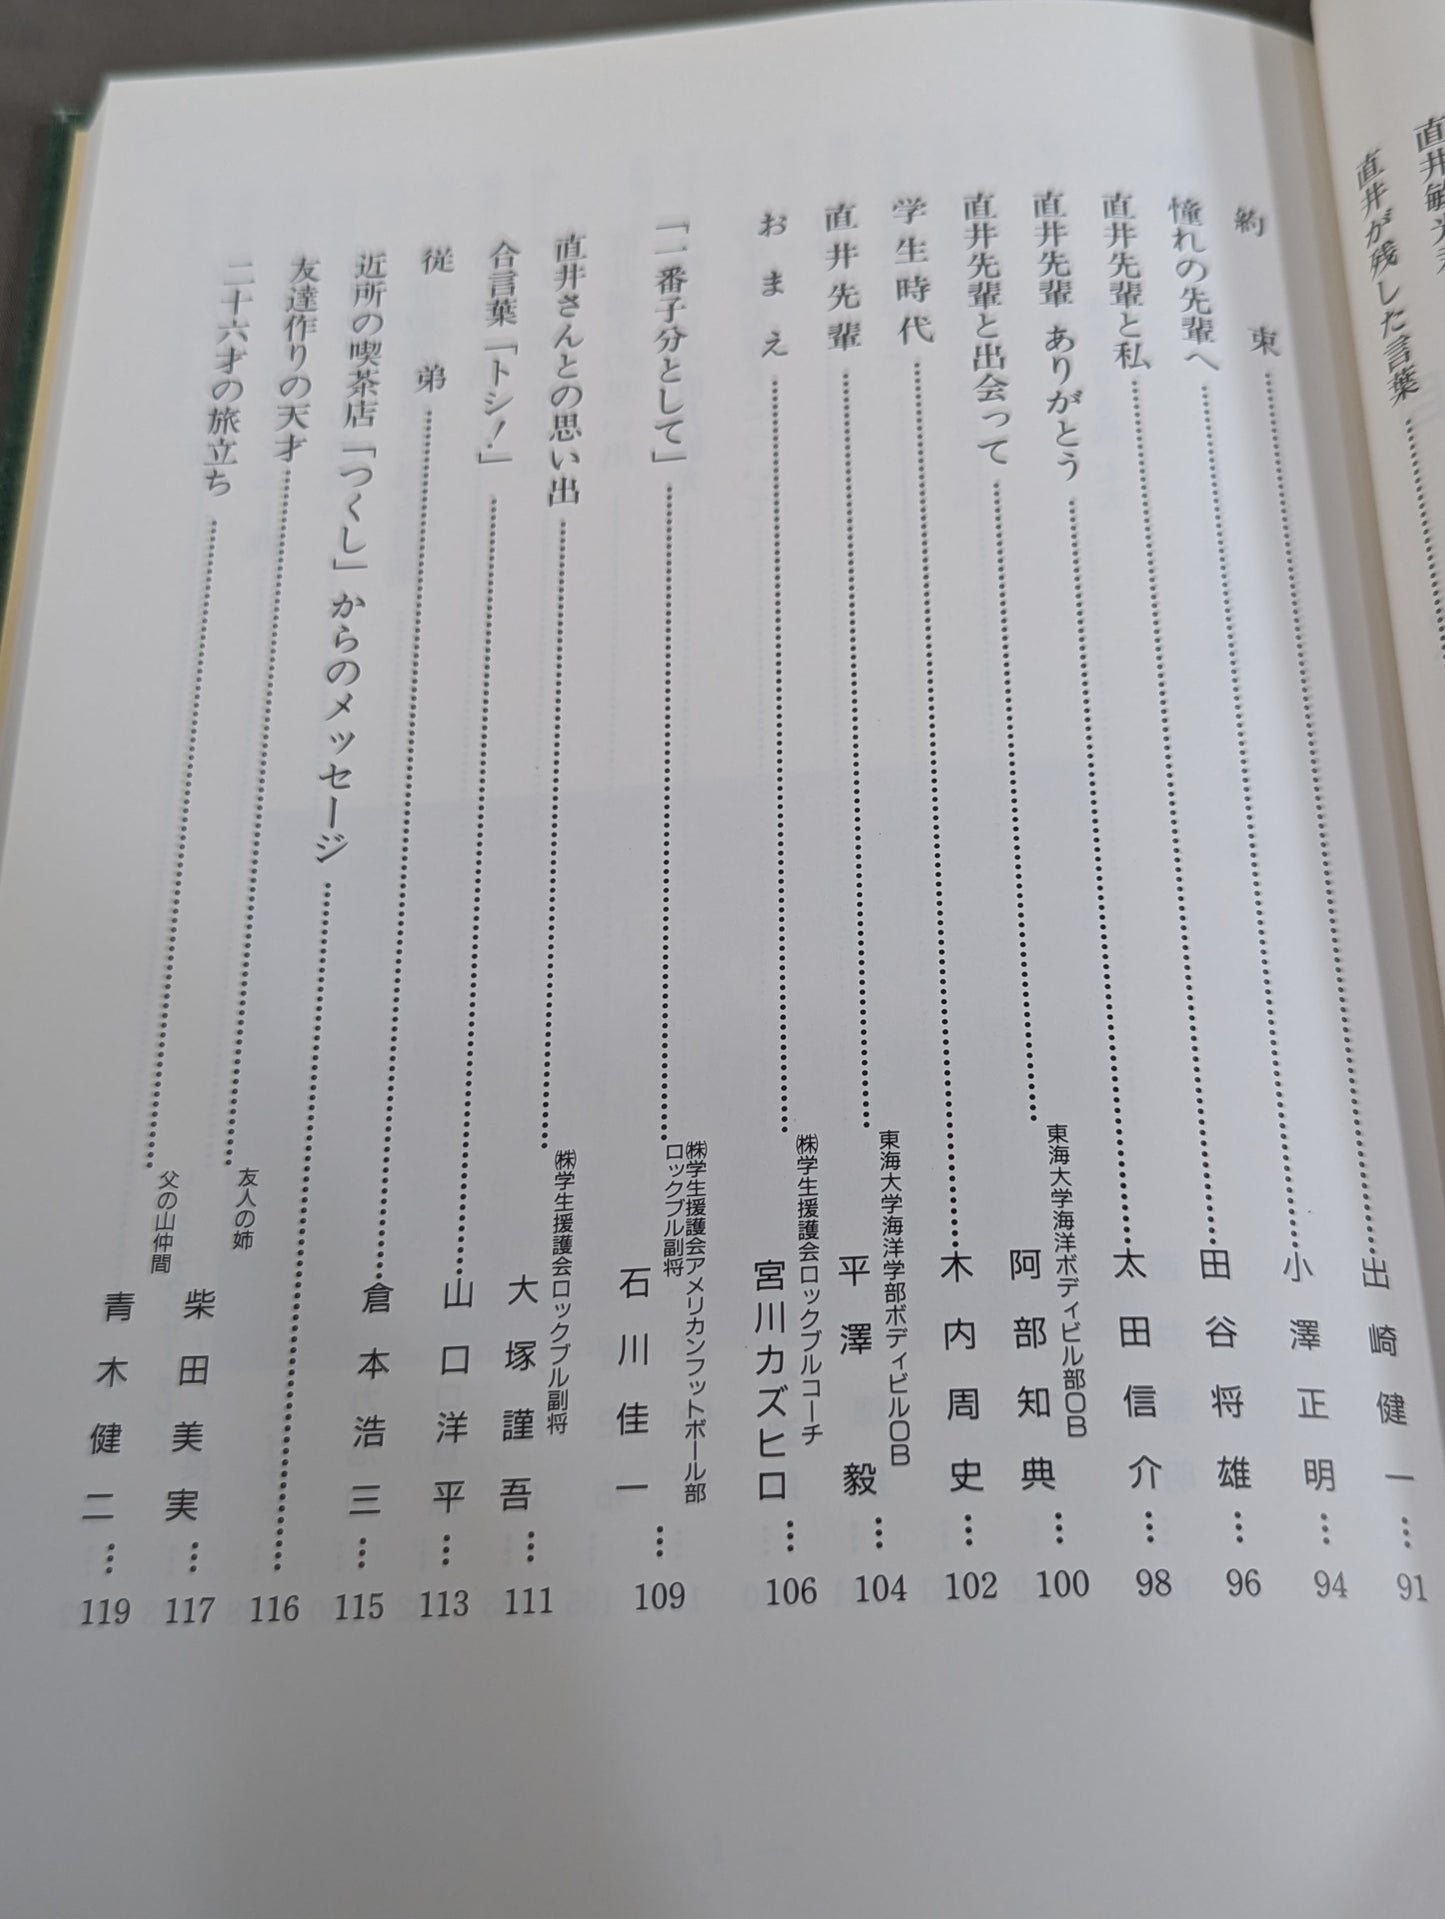 直井が残した言葉
約束 出崎健一 … 91
憧れの先輩へ 小澤正明 … 94
直井先輩と私 田谷将雄 … 96
直井先輩 ありがとう 太田信介 … 98
直井先輩と出会って 東海大学海洋ボディビル部OB 阿部知典 … 100
学生時代 木内周史 … 102
直井先輩 東海大学海洋学部ボディビルOB 平澤毅 … 104
おまえ ㈱学生援護会ロックブルコーチ 宮川カズヒロ … 106
「一番子分として」 ㈱学生援護会アメリカンフットボール部
ロックブル副将 石川佳一 … 109
直井さんとの思い出 ㈱学生援護会ロックブル副将 大塚謹吾 … 111
合言葉「トシ!」 山口洋平 … 113
従弟 倉本浩三 … 115
近所の喫茶店「つくし」からのメッセージ … 116
友達作りの天才 友人の姉 柴田美実 … 117
二十六才の旅立ち 父の山仲間 青木健二 … 119